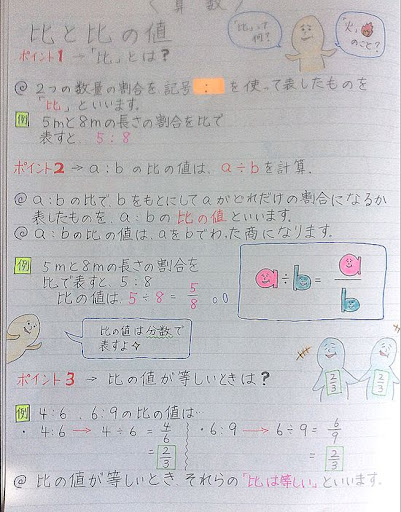 〈算数〉
比と比の値
「比」って何?
"火"のこと?
ポイント1 → 「比」とは?
@ 2つの数量の割合を記号 : を使って表したものを
「比」といいます。
例 5mと8mの長さの割合を比で
表すと、5:8
ポイント2 → a:bの比の値は、a÷bを計算.
@ a:bの比で、bをもとにしてaがどれだけの割合になるか
表したものを、a:bの比の値といいます。
@ a:bの比の値は、aをbでわった商になります。
例 5mと8mの長さの割合を
比で表すと、5:8
比の値は 5÷8 = 5/8
a÷b = a/b
比の値は分数で
表すよ☆
ポイント3 → 比の値が等しいときは?
2/3 2/3
例 4:6 、6:9の比の値は…
・4:6 → 4÷6 = 4/6 ・6:9 → 6÷9 = 6/9
= 2/3 = 2/3
@ 比の値が等しいとき、それらの「比は等しい」といいます。